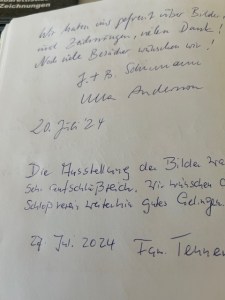 Zeichnungen
Wir haben uns gefreut über Bilder
und Zeichnungen, vielen Dank!
Noch viele Besucher wünschen wir!
J. + B.
Ulla Anderson
20. Juli '24
Die Ausstellung der Bilder
Sehr aufschlußreich. Wir wünschen
Schloßverein weiterhin gutes Gelingen.
27. Jul. 2024 Fam.